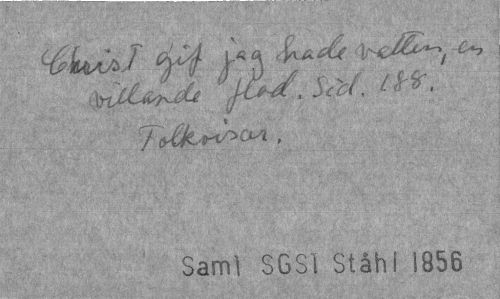 Christ gif jag hade vatten, en
villande flod. Sid. 188.
Folkvisor.
Saml SGS1 Ståhl 1856